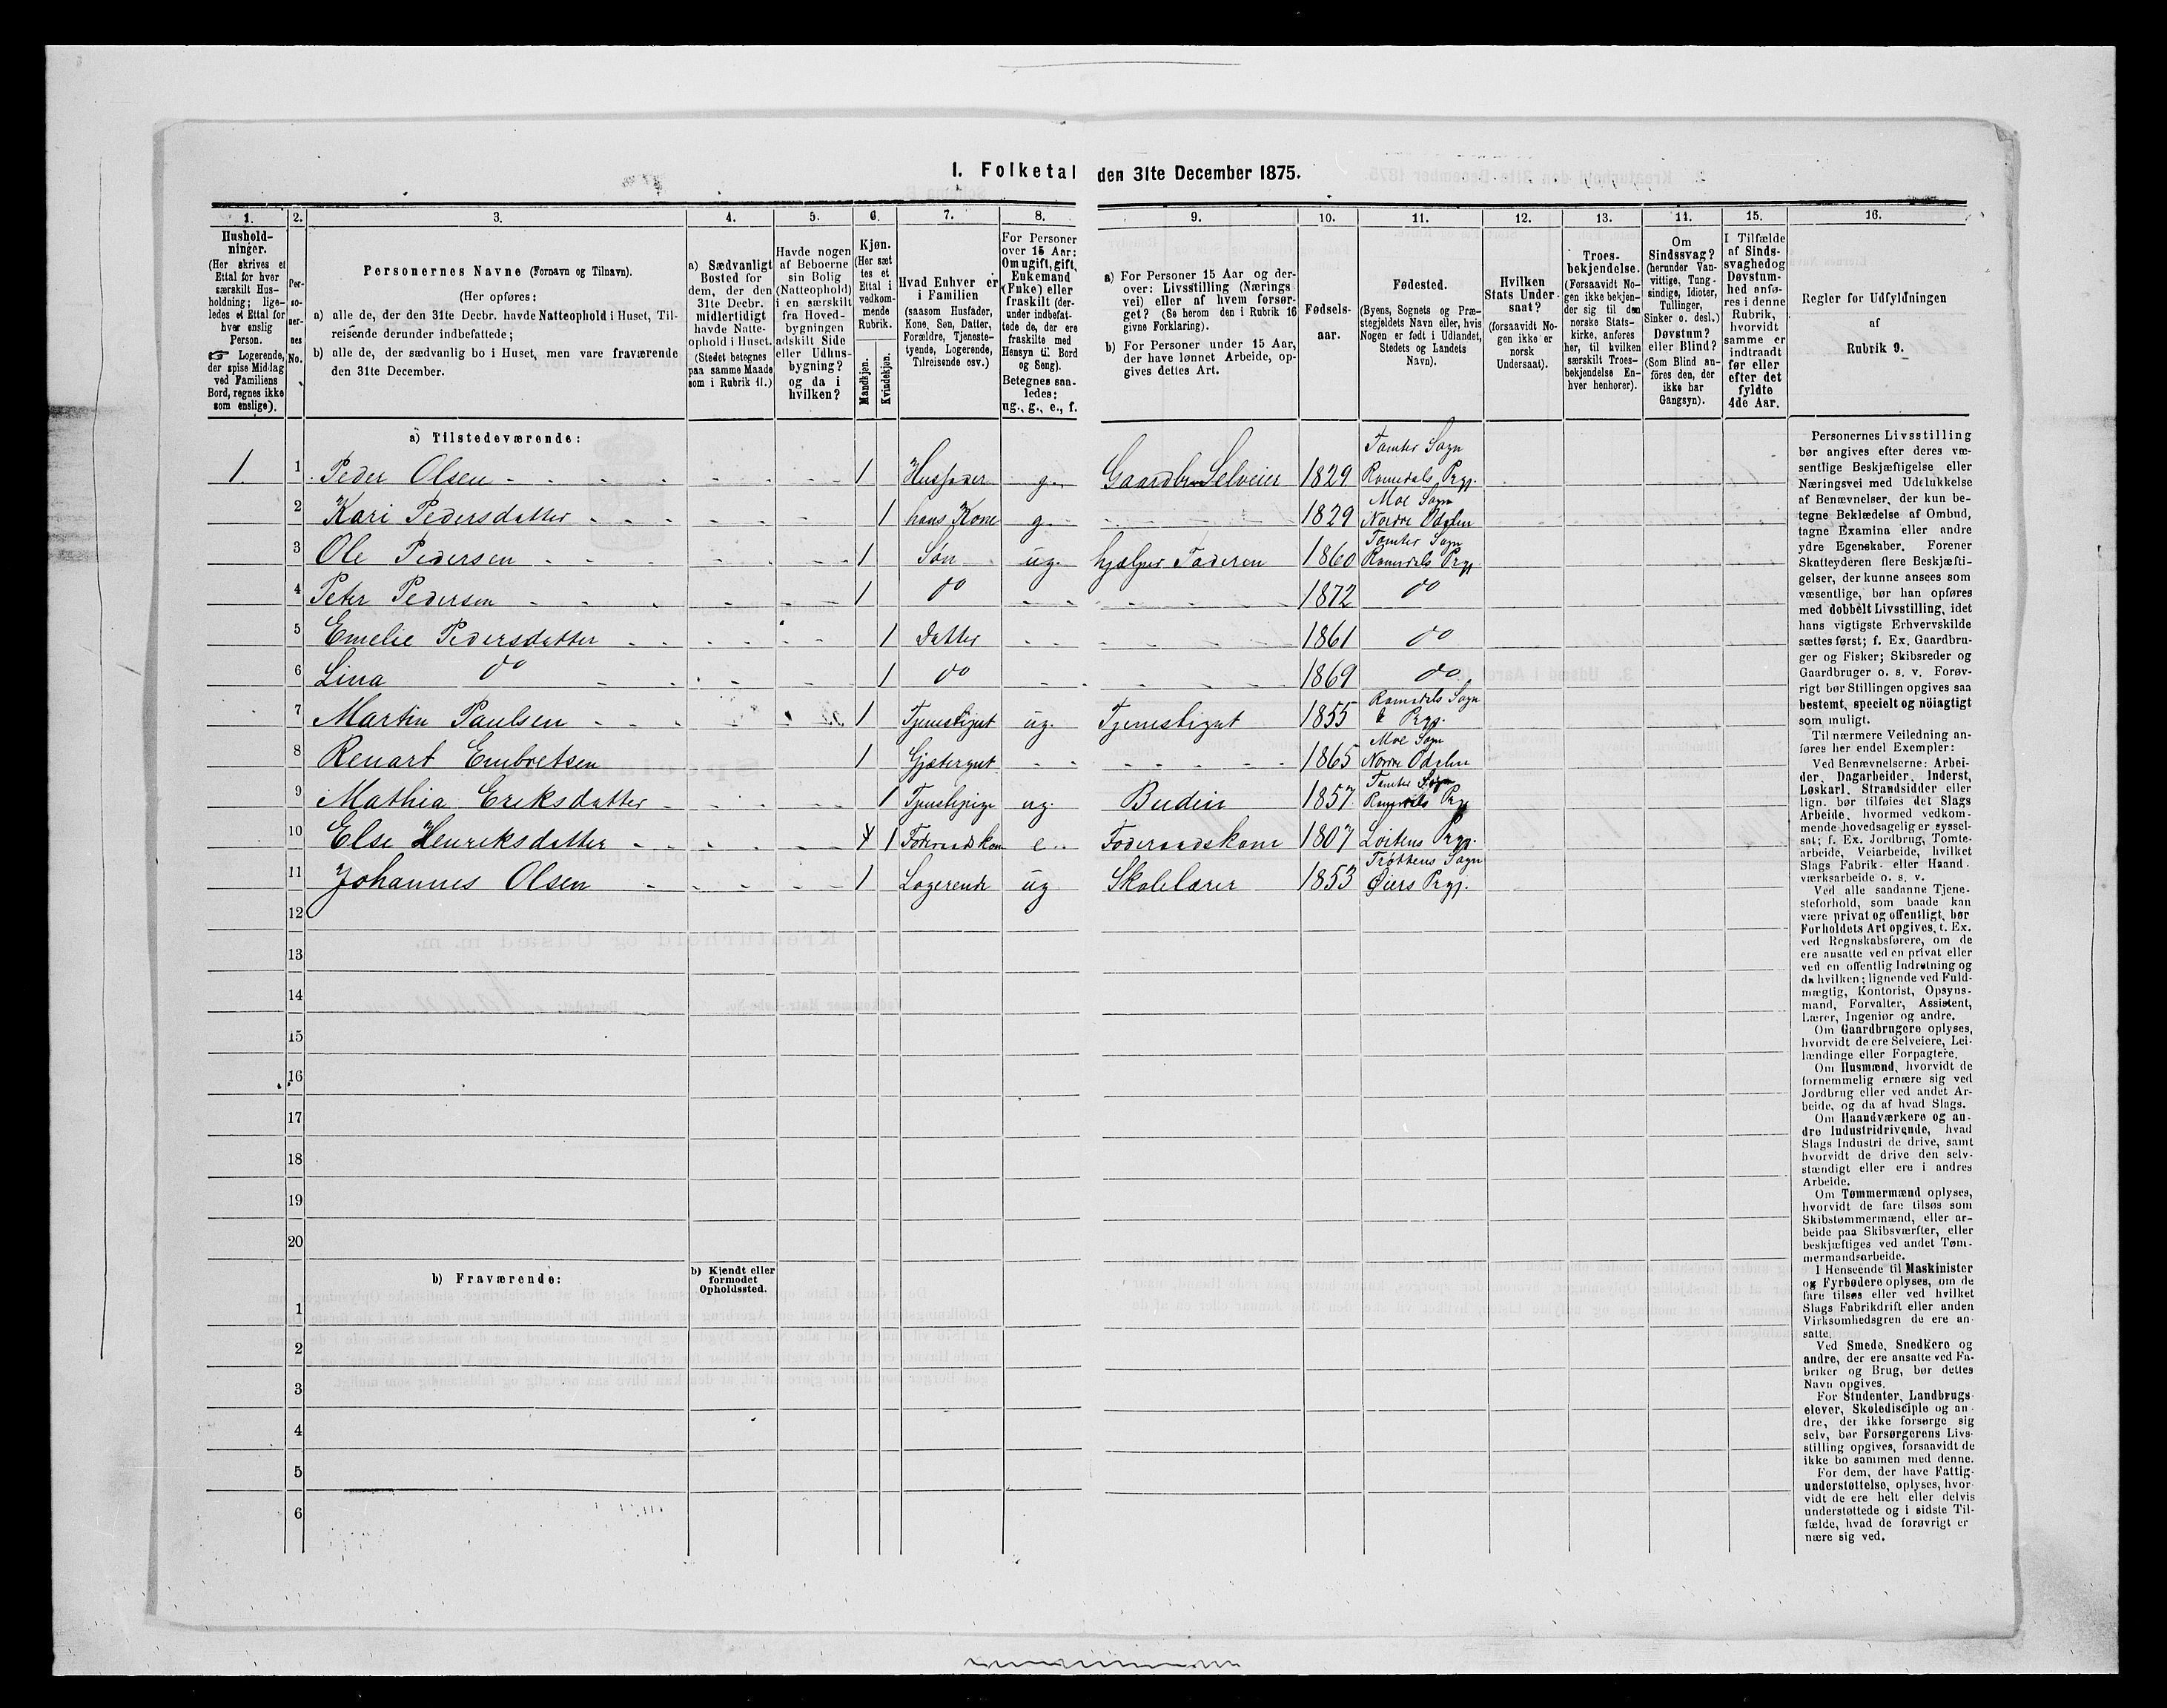 1. Folketal den 31te December 1875.
1. 2. 3. 4. 5. 6. 7. 8. 9. 10. 11. 12. 13. 14. 15. 16.
Hushold-
ninger.
(Her skrives et
Ettal for hver
særskilt Hus-
holdning; lige-
ledes et Ettal for
hver enslig
Person.
☞ Logerende,
der spise Middag
ved Familiens
Bord, regnes ikke
som enslige).
Per-
so-
ner-
nes
No.
Personernes Navne (Fornavn og Tilnavn).
(Her opføres:
a) alle de, der den 31te Decbr. havde Natteophold i Huset, Til-
reisende derunder indbefattede;
b) alle de, der sædvanlig bo i Huset, men vare fraværende
den 31te December.
a) Sædvanligt
Bosted for
dem, der den
31te Decbr.
midlertidigt
havde Natte-
ophold i Huset.
(Stedet betegnes
paa samme Maade
som i Rubrik 11.)
Havde nogen
af Beboerne
sin Bolig
(Natteophold)
i en særskilt
fra Hoved-
bygningen
adskilt Side
eller Udhus-
bygning?
og da i
hvilken?
Kjøn.
(Her sæt
tes et
Ettal i
vedkom-
mende
Rubrik.
Mandkjøn.
Kvindekjøn.
Hvad Enhver er
i Familien
(saasom Husfader,
Kone, Søn, Datter,
Forældre, Tjeneste-
tyende, Logerende,
Tilreisende osv.)
For Personer
over 15 Aar:
Om ugift, gift,
Enkemand
(Enke) eller
fraskilt (der-
under indbefat-
tede de, der ere
fraskilte med
Hensyn til Bord
og Seng).
Betegnes saa-
ledes:
ug., g., e., f.
a) For Personer 15 Aar og der-
over: Livsstilling (Nærings
vei) eller af hvem forsør-
get? (Se herom den i Rubrik 16
givne Forklaring).
b) For Personer under 15 Aar,
der have lønnet Arbeide, op-
gives dettes Art.
Fødsels-
aar.
Fødested.
(Byens, Sognets og Præ-
stegjeldets Navn eller, hvis
Nogen er født i Udlandet,
Stedets og Landets
Navn).
Hvilken
Stats Under-
saat?
(forsaavidt No-
gen ikke er
norsk
Undersaat).
Troes-
bekjendelse.
(Forsaavidt No-
gen ikke bekjen-
der sig til den
norske Stats-
kirke, anføres
her, til hvilken
særskilt Troes-
bekjendelse En-
hver henhører).
Om
Sindssvag?
(herunder Van-
vittige, Tung-
sindige, Idioter,
Tullinger,
Sinker o. desl.)
Døvstum?
eller Blind?
(Som Blind an-
føres den, der
ikke har
Gangsyn).
I Tilfælde
af Sinds-
svaghed og
Døvstum-
hed anfø-
res i denne
Rubrik,
hvorvidt
samme er
indtraadt
før eller
efter det
fyldte
4de Aar.
Regler for Udfyldningen
af
Rubrik 9.
a) Tilstedeværende:
1. 1 Peder Olsen 1 Husfader g. Gaardbr. Selveier 1829 Tomter Sogn Romedals Prgj.
2 Kari Pedersdatter 1 hans Kone g 1829 Moe Sogn Nordre Odalen
3 Ole Pedersen 1 Søn ug. hjælper Faderen 1860 Tomter Sogn Romedals Prgj
4 Peter Pedersen 1 do 1872 do
5 Emelie Pedersdatter 1 Datter 1861 do
6 Lina do 1 do 1869 do
7 Martin Paulsen 1 Tjenestegut ug. Tjenestegut 1855 Romedals Sogn & Prgj.
8 Renart Embretsen 1 Gjætergut 1865 Moe Sogn Nordre Odalen
9 Mathia Eriksdatter 1 Tjenstepige ug. Budeie 1857 Tomter Sogn Romedals Prgj
10 Else Henriksdatter 1 Foderaadskone e. Foderaadskone 1807 Løitens Prgj.
11 Johannes Olsen 1 Logerende ug Skolelærer 1853 Trøttens Sogn Øiers Prgj.
12
13
14
15
16
17
18
19
20
b) Fraværende:
b) Kjendt eller
formodet
Opholdssted.
1
2
3
4
5
6
Personernes Livsstilling
bør angives efter deres væ-
sentlige Beskjæftigelse eller
Næringsvei med Udelukkelse
af Benævnelser, der kun be-
tegne Beklædelse af Ombud,
tagne Examina eller andre
ydre Egenskaber. Forener
Skatteyderen flere Beskjæfti-
gelser, der kunne ansees som
væsentlige, bør han opføres
med dobbelt Livsstilling, idet
hans vigtigste Erhvervskilde
sættes først; f. Ex. Gaardbru-
ger og Fisker; Skibsreder og
Gaardbruger o. s. v. Forøv-
rigt bør Stillingen opgives saa
bestemt, specielt og nöiagtigt
som muligt.
Til nærmere Veiledning an-
føres her endel Exempler:
Ved Benævnelserne: Arbei-
der, Dagarbeider, Inderst,
Løskarl, Strandsidder eller
lign. bør tilføies det Slags
Arbeide, hvormed vedkom-
mende hovedsagelig er syssel-
sat; f. Ex. Jordbrug, Tomte-
arbeide, Veiarbeide, hvilket
Slags Fabrik- eller Haand-
værksarbeide o. s. v.
Ved alle saadanne Tjene-
steforhold, som baade kan
være privat og offentligt, bør
Forholdets Art opgives, t. Ex.
ved Regnskabsførere, om de
ere ansatte ved en privat eller
ved en offentlig Indretning og
da hvilken; lignende ved Fuld-
mægtig, Kontorist, Opsyns-
mand, Forvalter, Assistent,
Lærer, Ingeniør og andre.
Om Gaardbrugere oplyses,
hvorvidt de ere Selveiere, Lei-
lændinge eller Forpagtere.
Om Husmænd, hvorvidt de
fornemmelig ernære sig ved
Jordbrug eller ved andet Ar-
beide, og da af hvad Slags.
Om Haandværkere og an-
dre Industridrivende, hvad
Slags Industri de drive, samt
hvorvidt de drive den selv-
stændigt eller ere i andres
Arbeide.
Om Tømmermænd oplyses,
hvorvidt de fare tilsøs som
Skibstømmermænd, eller ar-
beide paa Skibsværfter, eller
beskjæftiges ved andet Tøm-
mermandsarbeide.
I Henseende til Maskinister
og Fyrbødere oplyses, om de
fare tilsøs eller ved hvilket
Slags Fabrikdrift eller anden
Virksomhedsgren de ere an-
satte.
Ved Smede, Snedkere og
andre, der ere ansatte ved Fa-
briker og Brug, bør dettes
Navn opgives.
For Studenter, Landbrugs-
elever, Skoledisciple og an-
dre, der ikke forsørge sig
selv, bør Forsørgerens Livs-
stilling opgives, forsaavidt de
ikke bo sammen med denne.
For dem, der have Fattig-
understøttelse, oplyses, hvor-
vidt de ere helt eller delvis
understøttede og i sidste Til-
fælde, hvad de forøvrigt er
nære sig ved.